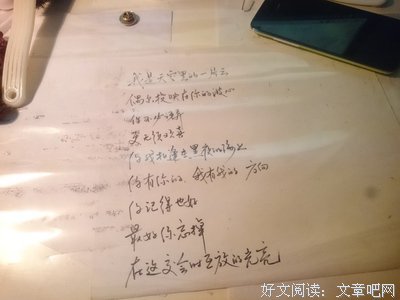 我是天空里的一片云
偶尔投映在你的波心
你不必讶异
更无须欢喜
你我相逢在黑夜的海上
你有你的，我有我的 方向
你记得也好
最好你忘掉
在这交会时互放的光亮
好文阅读：文章吧网